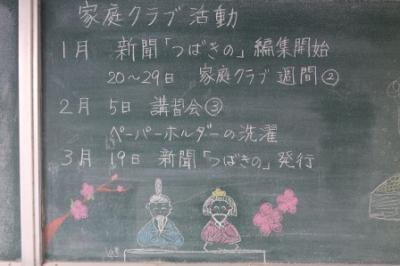 家庭クラブ活動
1月 新聞「つばきの」編集開始
20〜29日 家庭クラブ週間②
2月 5日 講習会③
ペーパーホルダーの洗濯
3月 19日 新聞「つばきの」発行